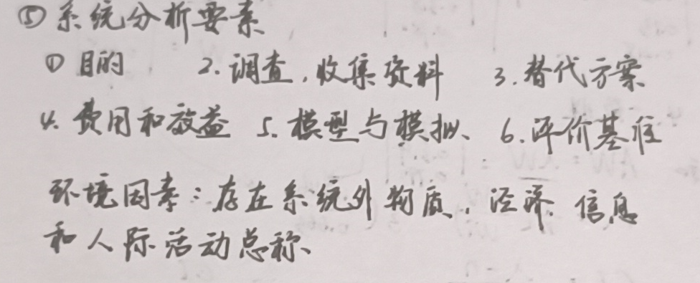 ⑤系统分析要素
①目的 2.调查,收集资料 3.替代方案
4.费用和效益 5.模型与模拟、 6.评价基准
环境因素:存在系统外物质,经济 信息
和人际活动总称、